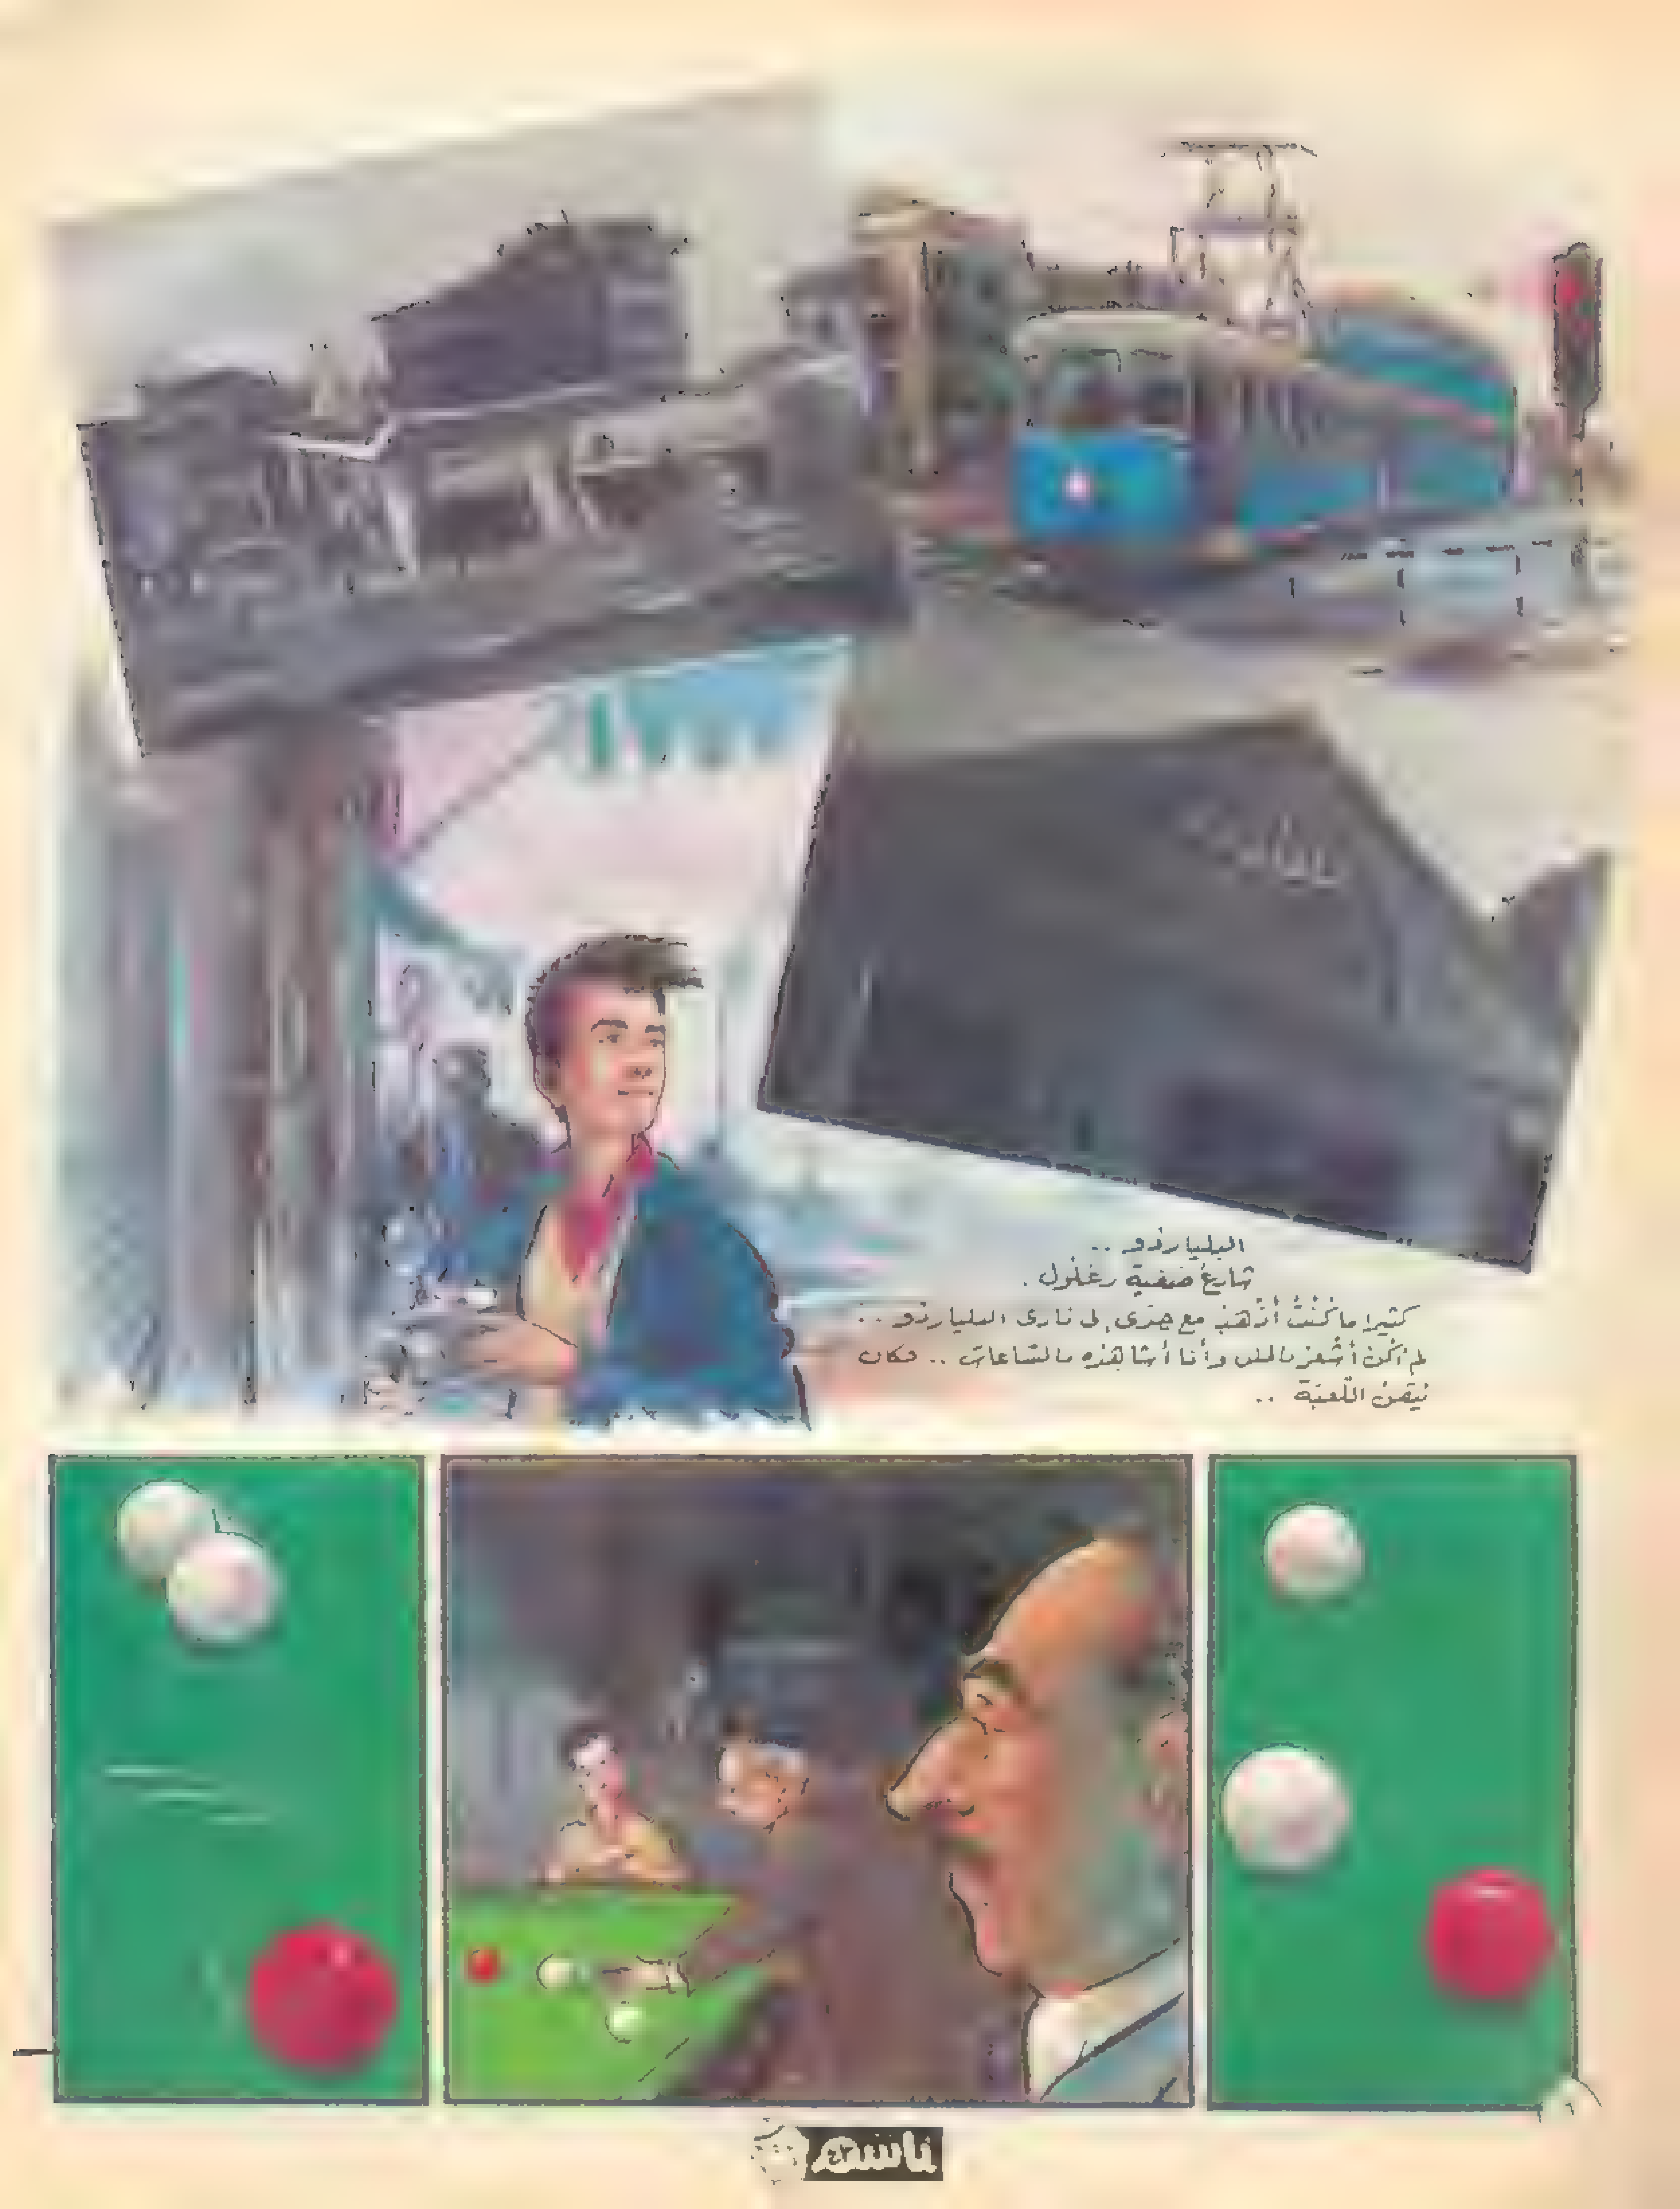 البلياردو ..
شارع صفية زغلول .
كثيرا ما كُنْتُ أذهب مع جدى إلى نادى البلياردو ..
لم أكن أشعر بالملل وأنا أشاهده بالساعات .. فكان
يتقن اللعبة ..
باسم